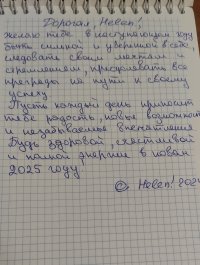 Дорогая, Helen!
желаю тебе в наступающем году
быть сильной и уверенной в себе,
следовать своим мечтам и
стремлениям, преодолевать все
преграды на пути к своему
успеху.
Пусть каждый день приносит
тебе радость, новые возможности
и незабываемые впечатления
Будь здоровой, счастливой
и полной энергии в новом
2025 году
© Helen! 2024